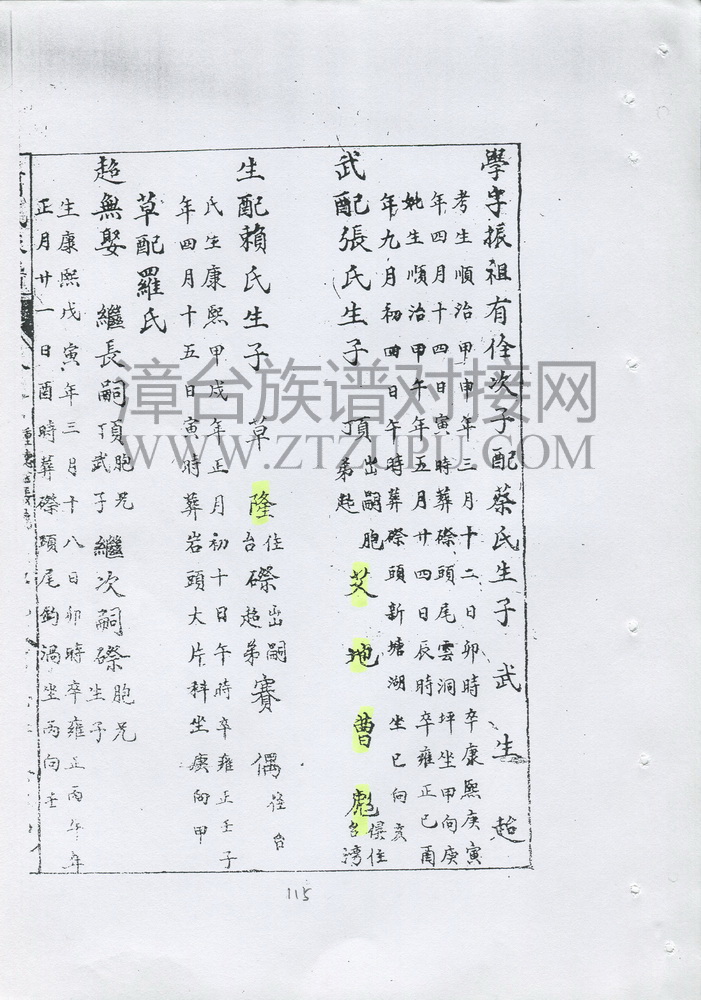 學字振祖有佺次子配蔡氏生子 武 生 超
考生順治甲申年三月十二日卯時卒康熙庚寅
年四月十四日寅時葬磜頭尾雲洞坪坐甲向庚
妣生順治甲午年五月廿四日辰時卒雍正己酉
年九月初四日午時葬磜頭新塘湖坐巳向亥
武配張氏生子 頂 出嗣胞弟超 艾 地 曹 彪 俱住台湾
生配賴氏生子 草 隆 住台 磜 出嗣超弟 賽 偶 台
氏生康熙甲戌年正月初十日午時卒雍正壬子
年四月十五日寅時葬岩頭大片科坐庚向甲
草配羅氏
超無娶 繼長嗣頂 胞兄武子 繼次嗣磜 胞兄生子
生康熙戊寅年三月十八日卯時卒雍正丙午年
正月廿一日酉時葬磜頭尾鈎渦坐丙向壬
漳台族谱对接网
WWW.ZTZUPU.COM
115